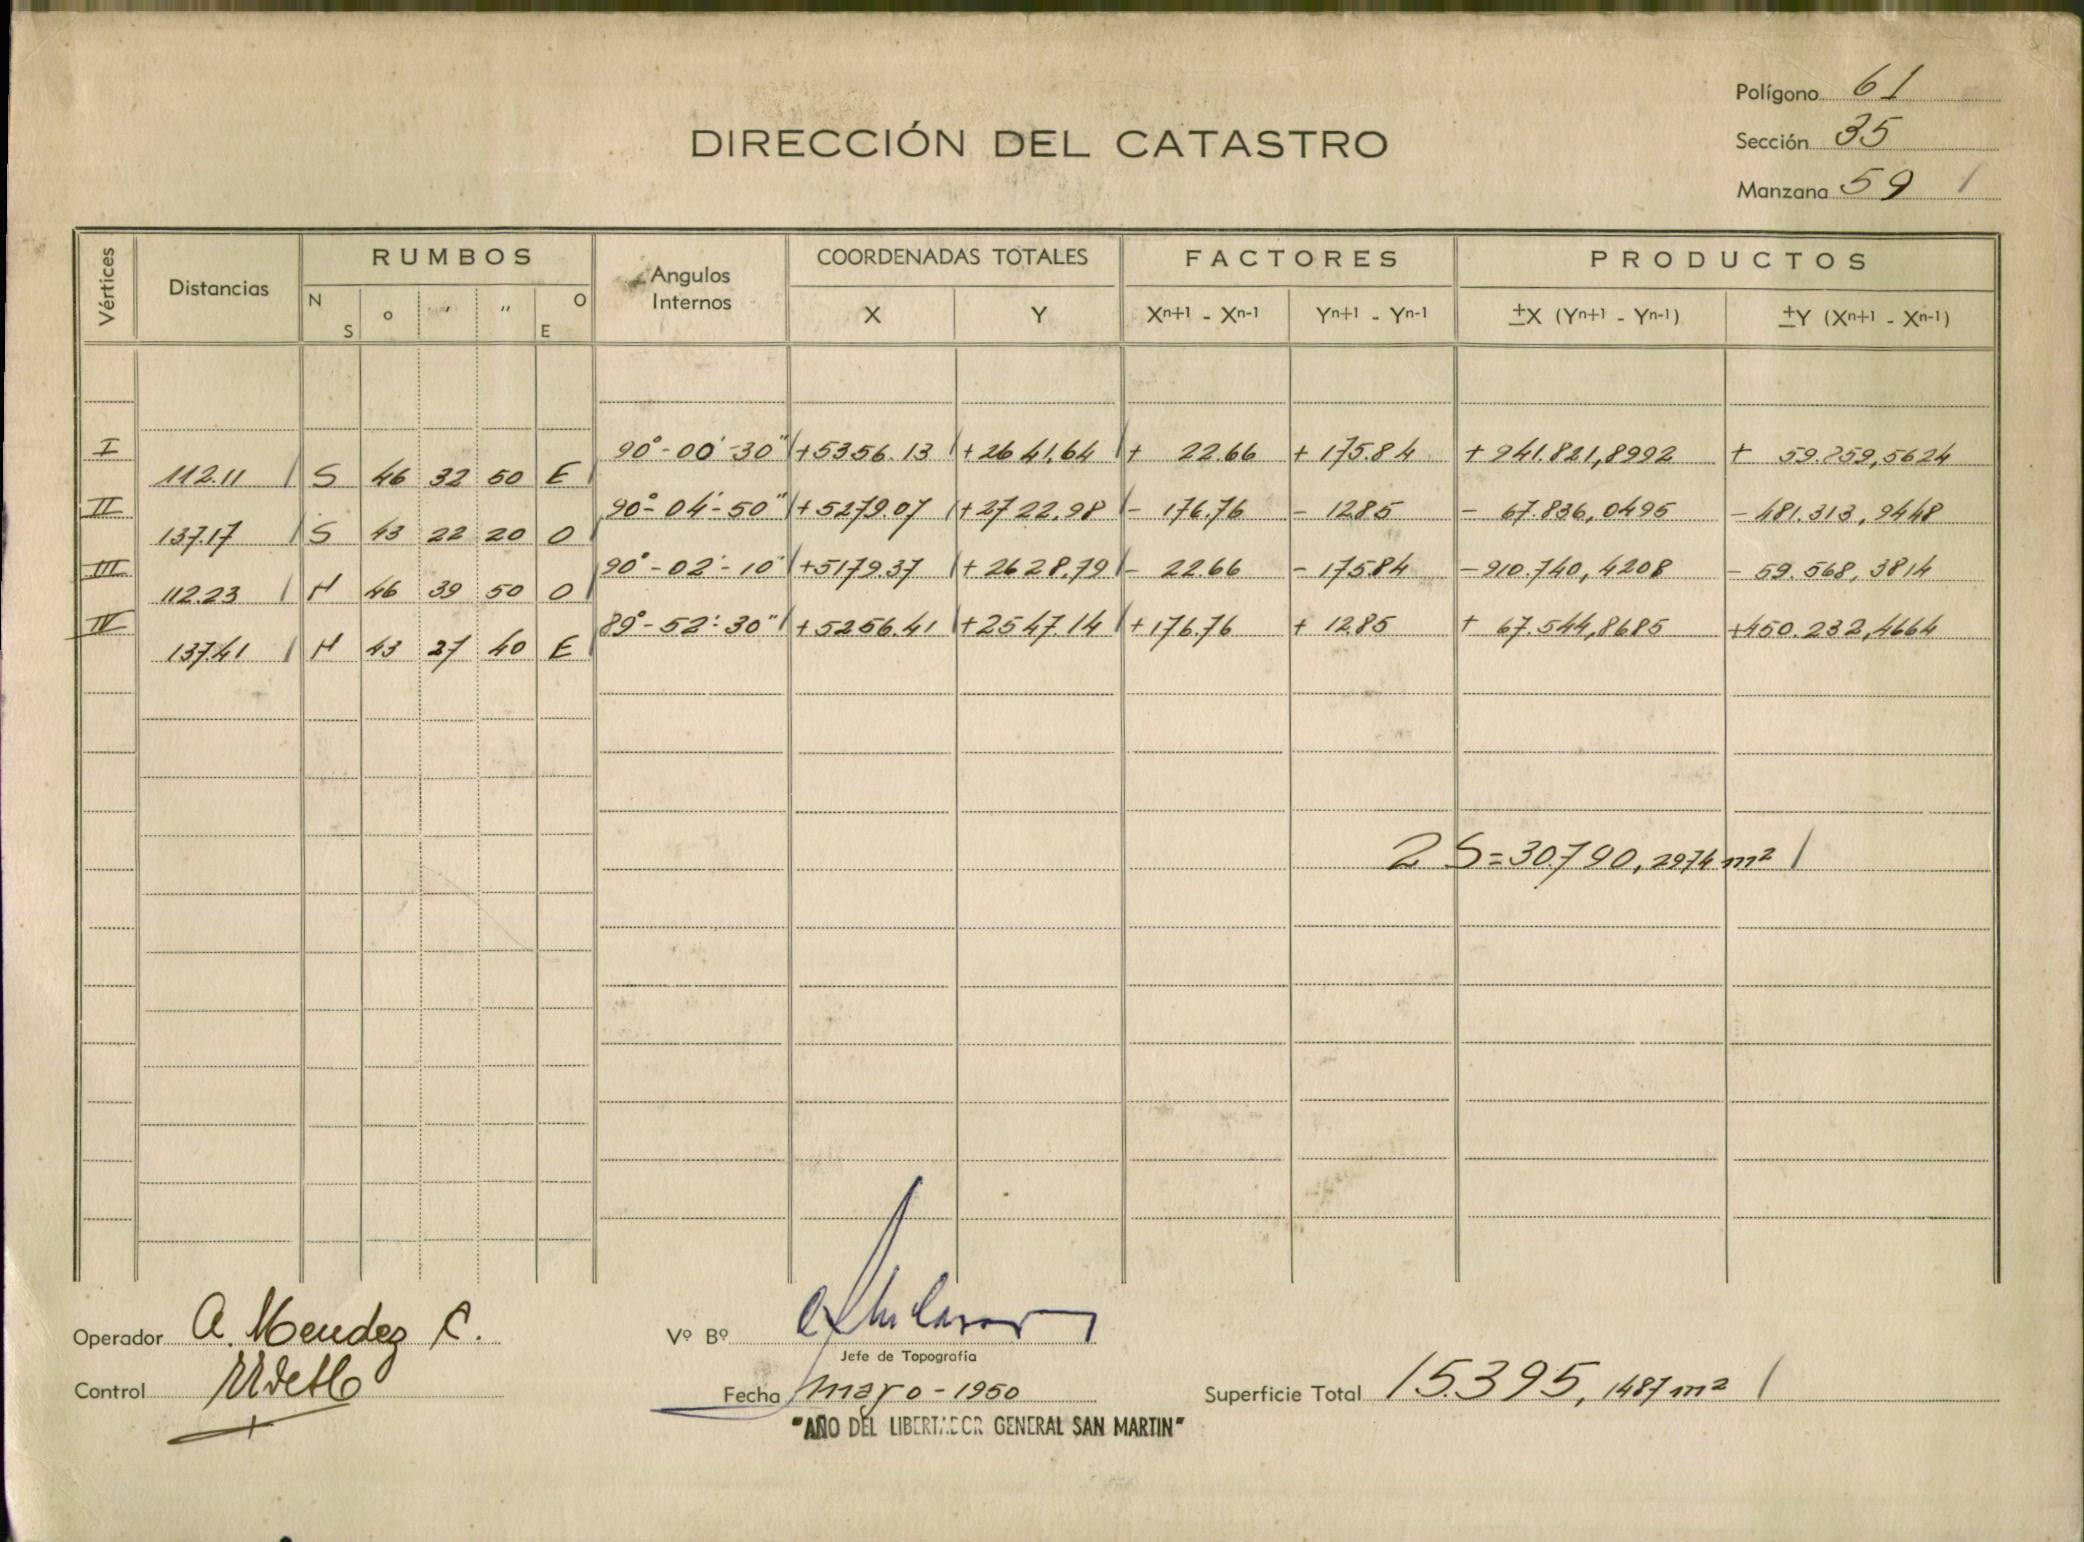 Polígono 61
DIRECCIÓN DEL CATASTRO
Sección 35
Manzana 59
Vértices Distancias RUMBOS Angulos Internos COORDENADAS TOTALES FACTORES PRODUCTOS
N S o ′ ″ O E X Y Xn+1 - Xn-1 Yn+1 - Yn-1 ±X (Yn+1 - Yn-1) ±Y (Xn+1 - Xn-1)
I 90°-00'-30" +5356.13 +2641.64 + 22.66 + 175.84 + 941.821,8992 + 59.859,5624
112.11 S 46 32 50 E
II 90°-04'-50" +5279.07 +2722.98 - 176.76 - 12.85 - 67.836,0495 - 481.313,9448
137.17 S 43 22 20 O
III 90°-02'-10" +5179.37 +2628.79 - 22.66 - 175.84 - 910.740,4208 - 59.568,3814
112.23 N 46 39 50 O
IV 89°-52'-30" +5256.41 +2547.14 +176.76 + 12.85 + 67.544,8685 +450.232,4664
137.41 N 43 27 40 E
2 S = 30.790,2974 m²
Operador A. Mendez C.
Vº Bº
Jefe de Topografía
Control
Fecha mayo - 1950
Superficie Total 15.395,1487 m²
"AÑO DEL LIBERTADOR GENERAL SAN MARTIN"